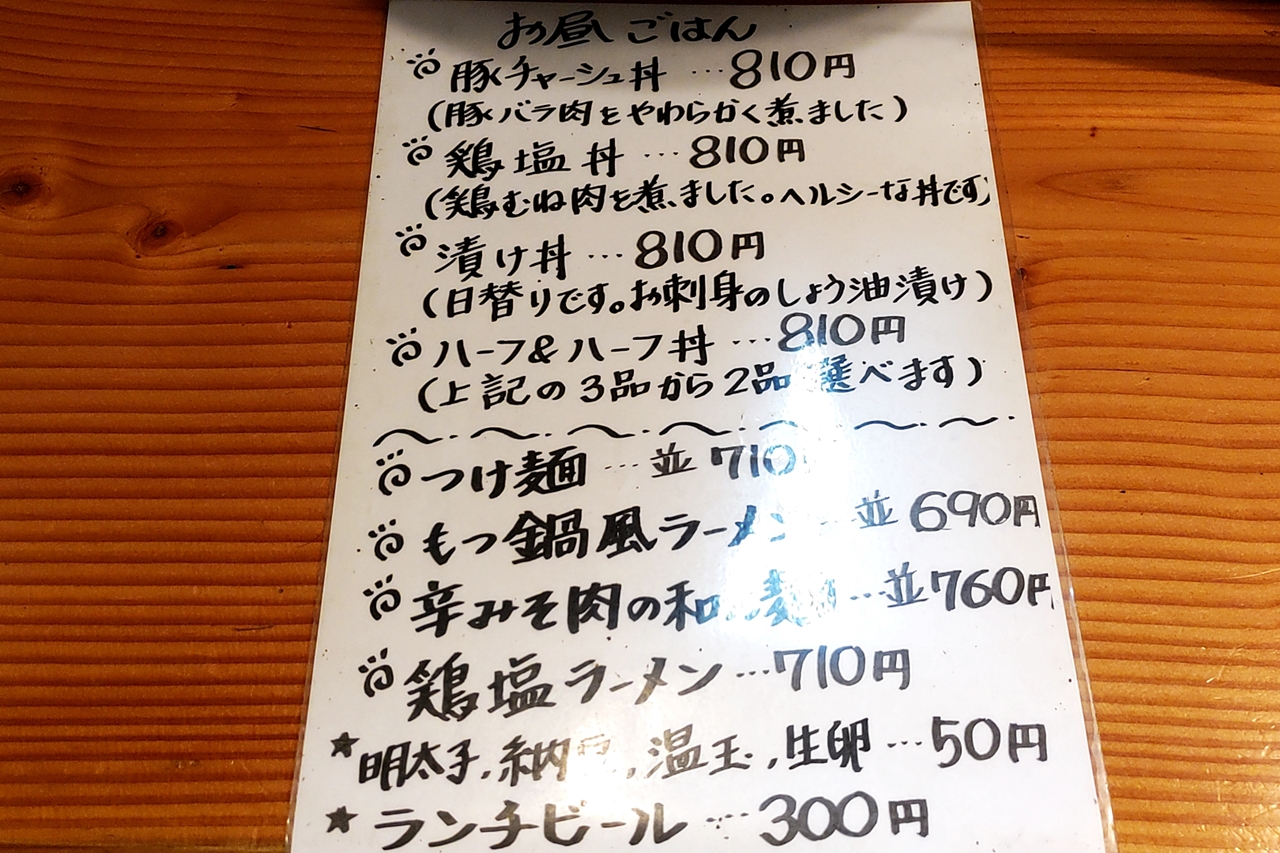 お昼ごはん
豚チャーシュ丼 …810円
(豚バラ肉をやわらかく煮ました)
鶏塩丼 …810円
(鶏むね肉を煮ました。ヘルシーな丼です)
漬け丼 …810円
(日替りです。お刺身のしょう油漬け)
ハーフ&ハーフ丼 …810円
(上記の3品から2品 選べます)
つけ麺 …並 710
もつ鍋風ラーメン …並 690円
辛みそ肉の和 麺 …並760円
鶏塩ラーメン …710円
★明太子,納豆,温玉,生卵 …50円
★ランチビール …300円